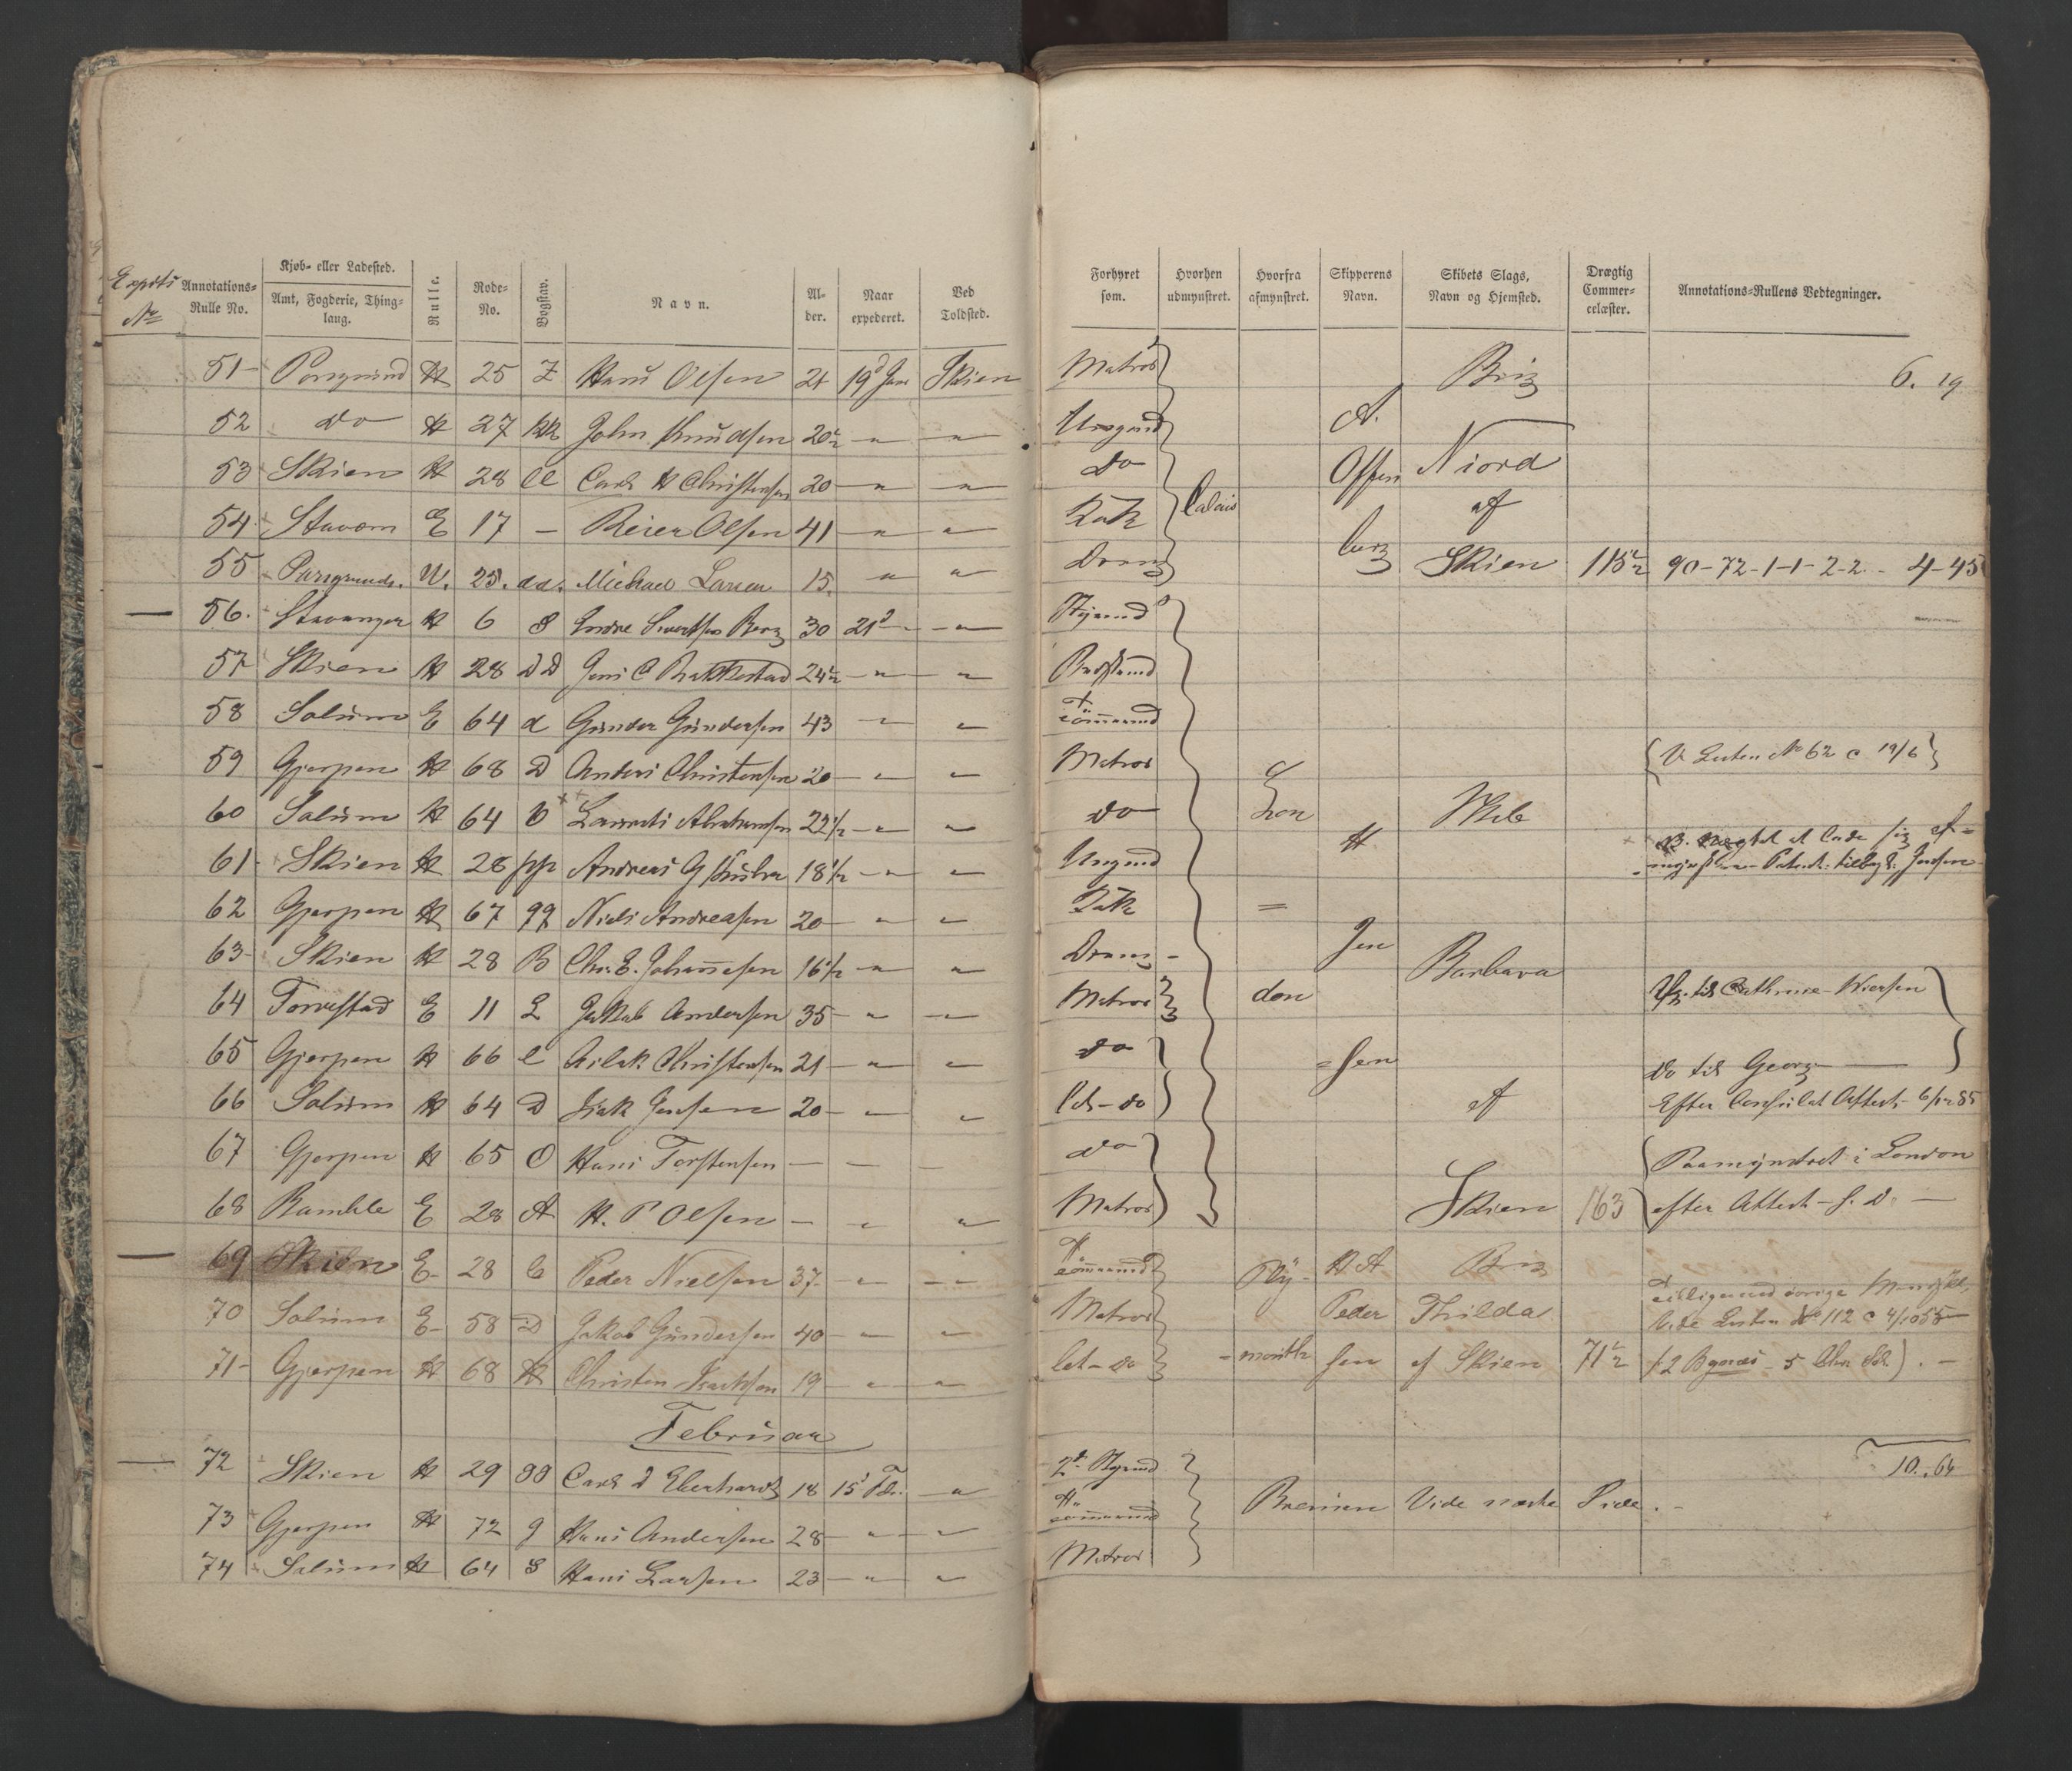 Expeds No
Annotations-Rulle No.
Kjøb- eller Ladested.
Amt, Fogderie, Thinglaug.
Rulle.
Rode-No.
Bogstav.
Navn.
Alder.
Naar expederet.
Ved Toldsted.
Forhyret som.
Hvorhen udmynstret.
Hvorfra afmynstret.
Skipperens Navn.
Skibets Slags, Navn og Hjemsted.
Drægtig Commercelæster.
Annotations-Rullens Vedtegninger.
51 Porsgrund H 25 Z Hans Olsen 21 19d Jan Skien Matros Brig 6. 19
52 do H 27 kk John Knudsen 20½ " " Ungmd A.
53 Skien H 28 ll Carl H Christensen 20 " " do Offen Niord
54 Stavern E 17 - Reier Olsen 41 " " Kok Calais af
55 Porsgrund. U. 25. dd. Michael Larsen 15. " " Dreng berg Skien 115½ 90-72-1-1-2-2 - 4-45
— 56. Stavanger H 6 S Endre Berg 30 21d " Styrmd
57 Skien H 28 DD Jens C Rakkestad 24½ " " Baadsmd
58 Solum E 64 d Gunder Gundersen 43 " " Tömmermd
59 Gjerpen H 68 D Anders Christensen 20 " " Matros { V Listen No 62 c 19/6 }
60 Solum H 64 v Laurits Abrahamsen 22½ " " do Lon H Skib
61 Skien H 28 pp Andreas G 18½ " " Ungmd
62 Gjerpen H 67 qq Niels Andreasen 20 " " Kok =
63 Skien H 28 B Chr. E. Johannesen 16½ " " Dreng - Jen Barbara
64 Torvestad E 11 L Jakob Andersen 35 " " Matros don til Cathrine Iversen
65 Gjerpen H 66 e Aslak Christensen 21 " " do =sen do til Georg
66 Solum H 64 D Isak Jensen 20 " " Let-do af Efter Consulat Attest
67 Gjerpen H 65 O Hans Torstensen — — — do Paamynstret i London
68 Bamble E 28 A H. P Olsen — " " Matros Skien 163 efter Attest f. D. —
— 69 Skien E 28 C Peder Nielsen 37 " " Tömmermd Ply- H.A Brig
70 Solum E 58 D Jakob Gundersen 40 " " Matros Peder Thilda Vide Listen No 112 c
71 Gjerpen H 68 H Christen Isaksen 19 " " Let-do =mouth sen af Skien 71½
Februar
— 72 Skien H 29 gg Carl d Eberhardt 18 15d Feb. " 2d Styrmd 10. 64
73 Gjerpen H 72 g Hans Andersen 28 " " Tömmermd Bremen Vide næste Side.
74 Solum H 64 S Hans Larsen 23 " " Matros